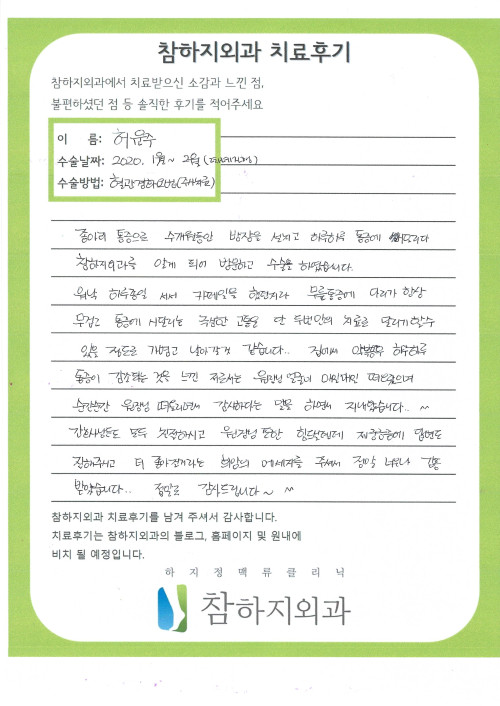 참하지외과 치료후기
참하지외과에서 치료받으신 소감과 느낀 점,
불편하셨던 점 등 솔직한 후기를 적어주세요
이 름: 허윤주
수술날짜: 2020. 1월~ 2월
수술방법: 혈관경화요법(주사치료)
종아리 통증으로 수개월동안 밤잠을 설치고 하루하루 통증에
참하지외과를 알게 되어 방문하고 수술을 하였습니다.
워낙 하루종일 서서 일을 무릎통증에 다리가 항상
무겁고 통증에 시달리는 고통을 단 두번만의 치료로 달리기 할수
있을 정도로 가볍고 날아갈것 같습니다.. 집에서 하루하루
통증이 감소되는 것을 느낀 저로서는 원장님 얼굴이 떠올랐으며
순간순간 원장님 떠올리면서 감사하다는 말을 하면서 지내었습니다.. ^^
간호사님들도 모두 친절하시고 원장님 또한 힘드실텐데 제
잘해주시고 더 좋아진거라는 희망의 메세지를 주셔서 정말 너무나 감동
받았습니다.. 정말로 감사드립니다~ ^^
참하지외과 치료후기를 남겨 주셔서 감사합니다.
치료후기는 참하지외과의 블로그, 홈페이지 및 원내에
비치 될 예정입니다.
하 지 정 맥 류 클 리 닉
참하지외과